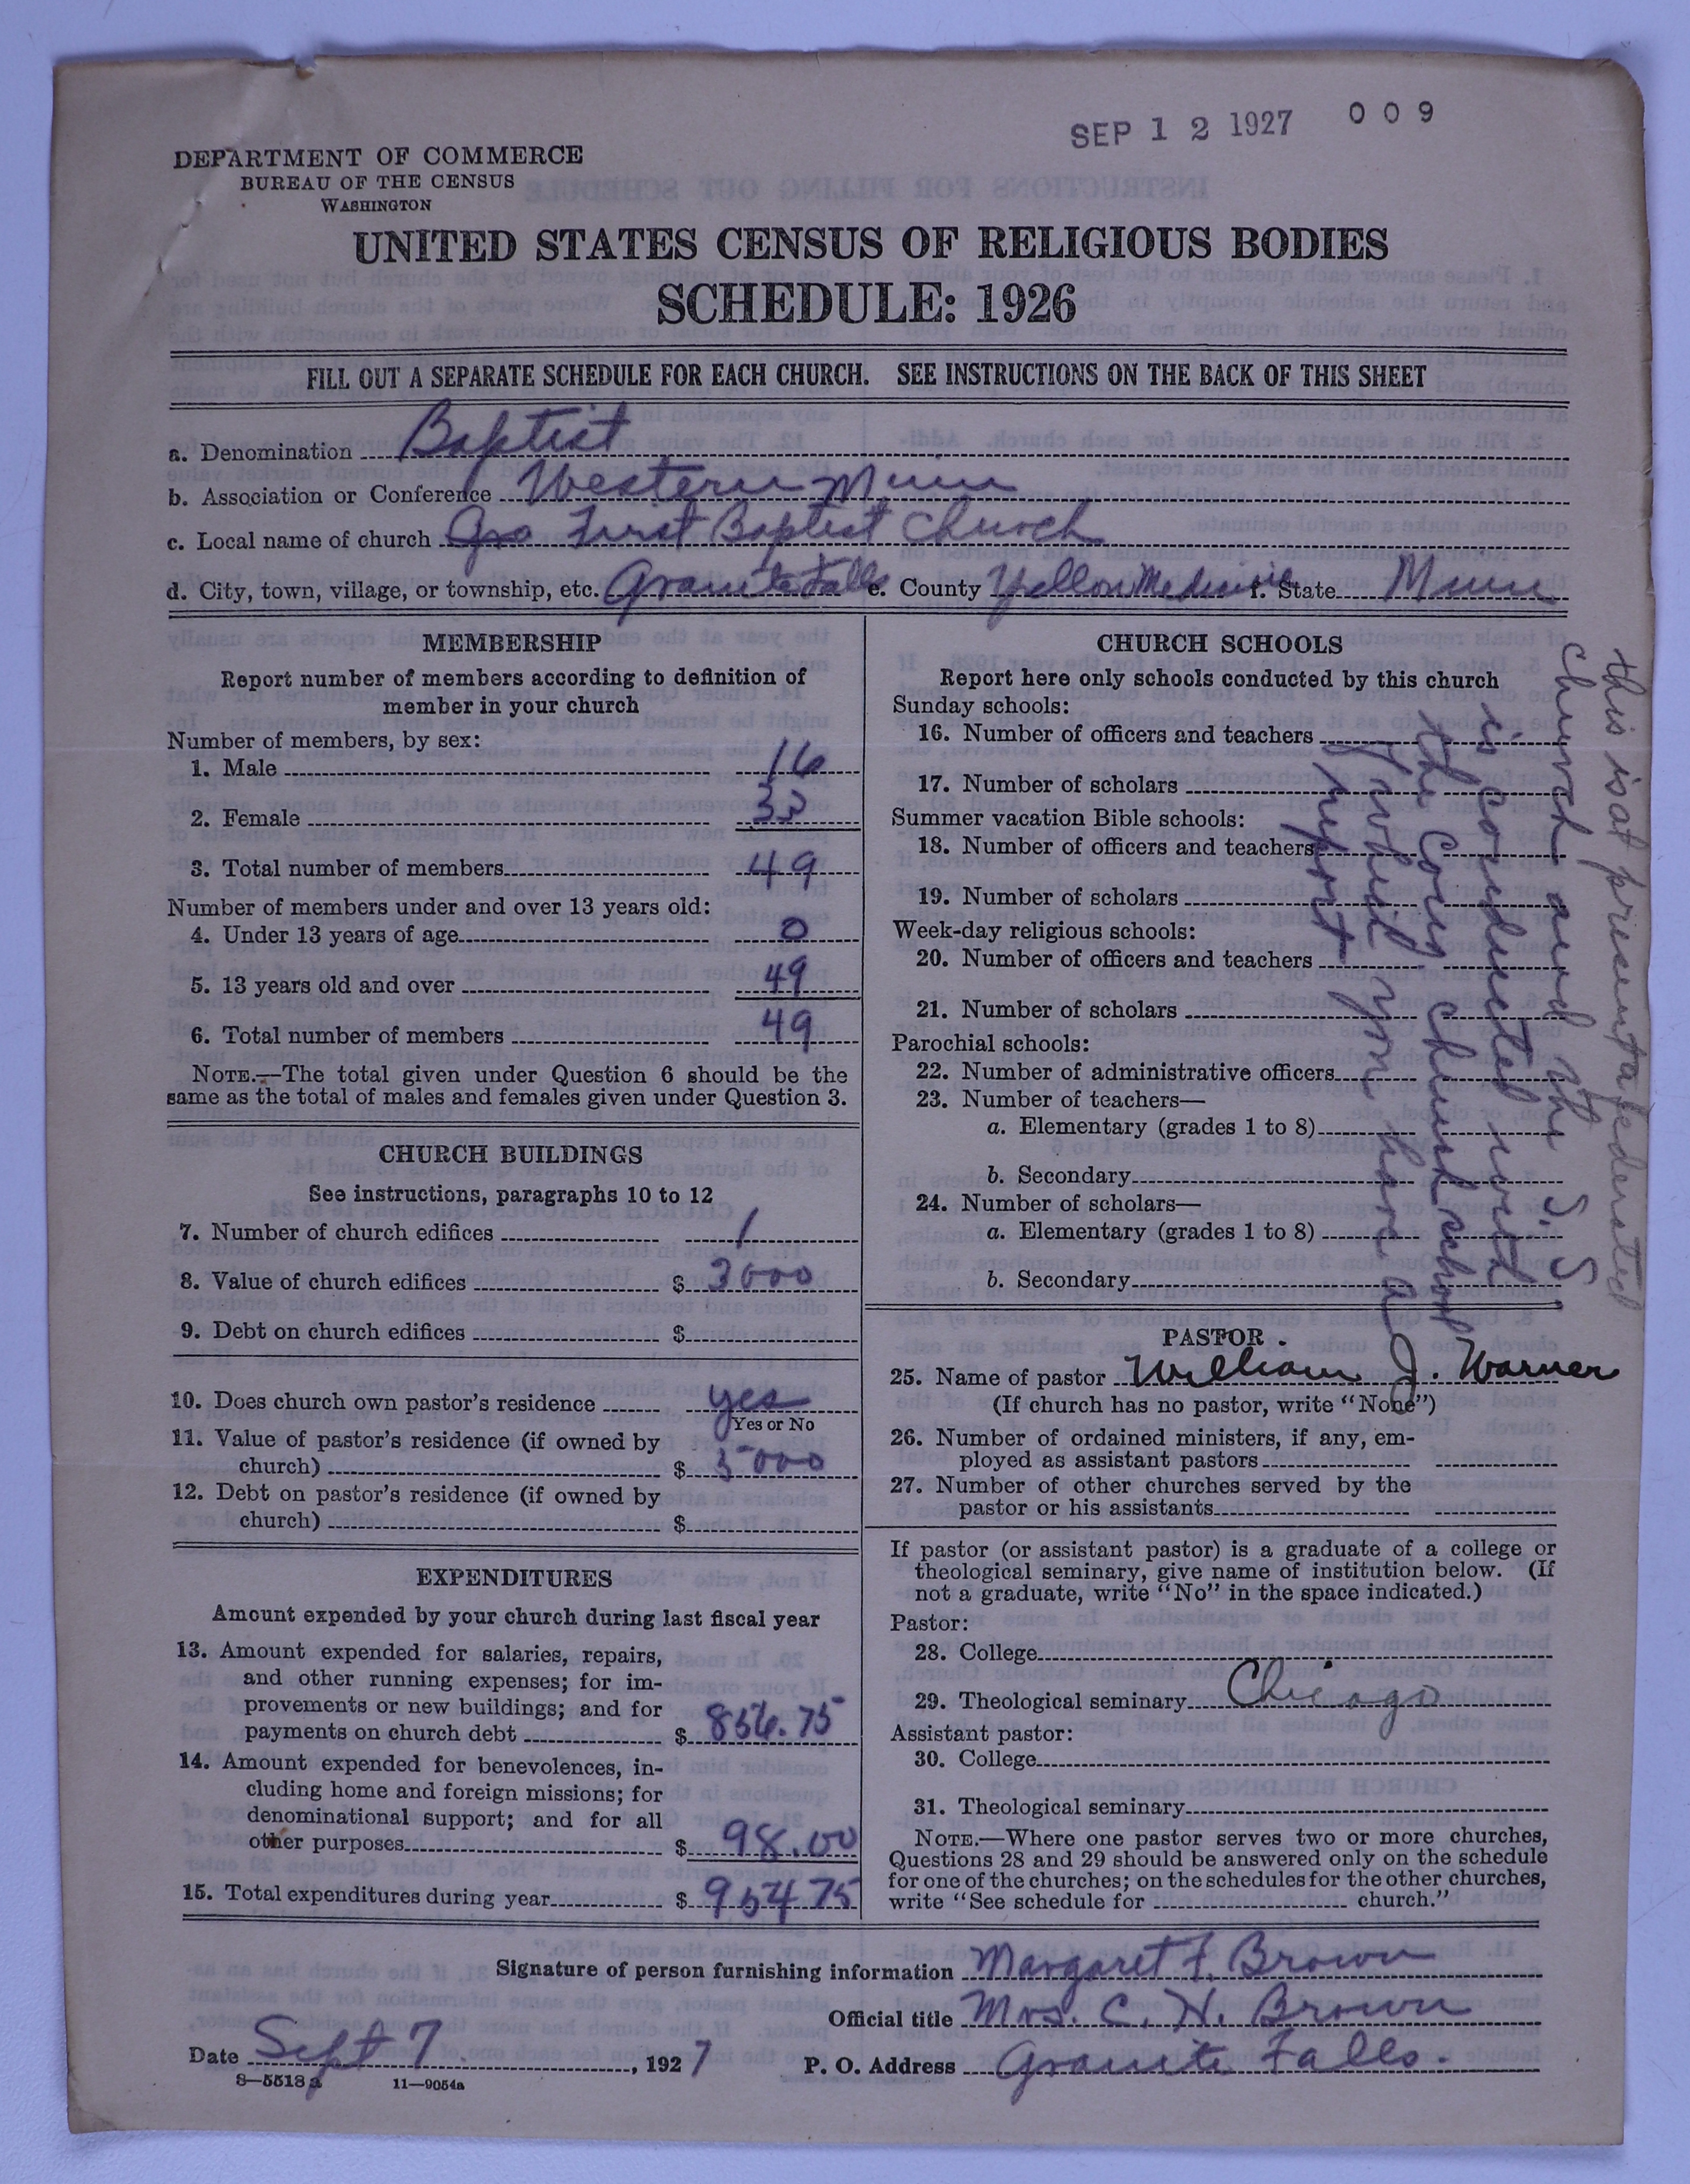 SEP 12 1927 009
DEPARTMENT OF COMMERCE
BUREAU OF THE CENSUS
WASHINGTON
UNITED STATES CENSUS OF RELIGIOUS BODIES
SCHEDULE: 1926
FILL OUT A SEPARATE SCHEDULE FOR EACH CHURCH. SEE INSTRUCTIONS ON THE BACK OF THIS SHEET
a. Denomination Baptist
b. Association or Conference Western Minn
c. Local name of church First Baptist Church
d. City, town, village, or township, etc. Granite Falls e. County Yellow Medicine f. State Minn
MEMBERSHIP
Report number of members according to definition of
member in your church
Number of members, by sex:
1. Male 16
2. Female 33
3. Total number of members 49
Number of members under and over 13 years old:
4. Under 13 years of age 0
5. 13 years old and over 49
6. Total number of members 49
NOTE.—The total given under Question 6 should be the
same as the total of males and females given under Question 3.
CHURCH BUILDINGS
See instructions, paragraphs 10 to 12
7. Number of church edifices 1
8. Value of church edifices $ 3000
9. Debt on church edifices $
10. Does church own pastor's residence yes
Yes or No
11. Value of pastor's residence (if owned by
church) $ 5000
12. Debt on pastor's residence (if owned by
church) $
EXPENDITURES
Amount expended by your church during last fiscal year
13. Amount expended for salaries, repairs,
and other running expenses; for im-
provements or new buildings; and for
payments on church debt $ 856.75
14. Amount expended for benevolences, in-
cluding home and foreign missions; for
denominational support; and for all
other purposes $ 98.00
15. Total expenditures during year $ 954 75
CHURCH SCHOOLS
Report here only schools conducted by this church
Sunday schools:
16. Number of officers and teachers
17. Number of scholars
Summer vacation Bible schools:
18. Number of officers and teachers
19. Number of scholars
Week-day religious schools:
20. Number of officers and teachers
21. Number of scholars
Parochial schools:
22. Number of administrative officers
23. Number of teachers—
a. Elementary (grades 1 to 8)
b. Secondary
24. Number of scholars—
a. Elementary (grades 1 to 8)
b. Secondary
this is at present a federated
church and the S. S
is conducted with
the Cong church school
which you have a
report
PASTOR
25. Name of pastor William J. Warner
(If church has no pastor, write "None")
26. Number of ordained ministers, if any, em-
ployed as assistant pastors
27. Number of other churches served by the
pastor or his assistants
If pastor (or assistant pastor) is a graduate of a college or
theological seminary, give name of institution below. (If
not a graduate, write "No" in the space indicated.)
Pastor:
28. College
29. Theological seminary Chicago
Assistant pastor:
30. College
31. Theological seminary
NOTE.—Where one pastor serves two or more churches,
Questions 28 and 29 should be answered only on the schedule
for one of the churches; on the schedules for the other churches,
write "See schedule for church."
Signature of person furnishing information Margaret F. Brown
Official title Mrs. C. H. Brown
Date Sept 7, 1927 P. O. Address Granite Falls.
8—5518a 11—9054a